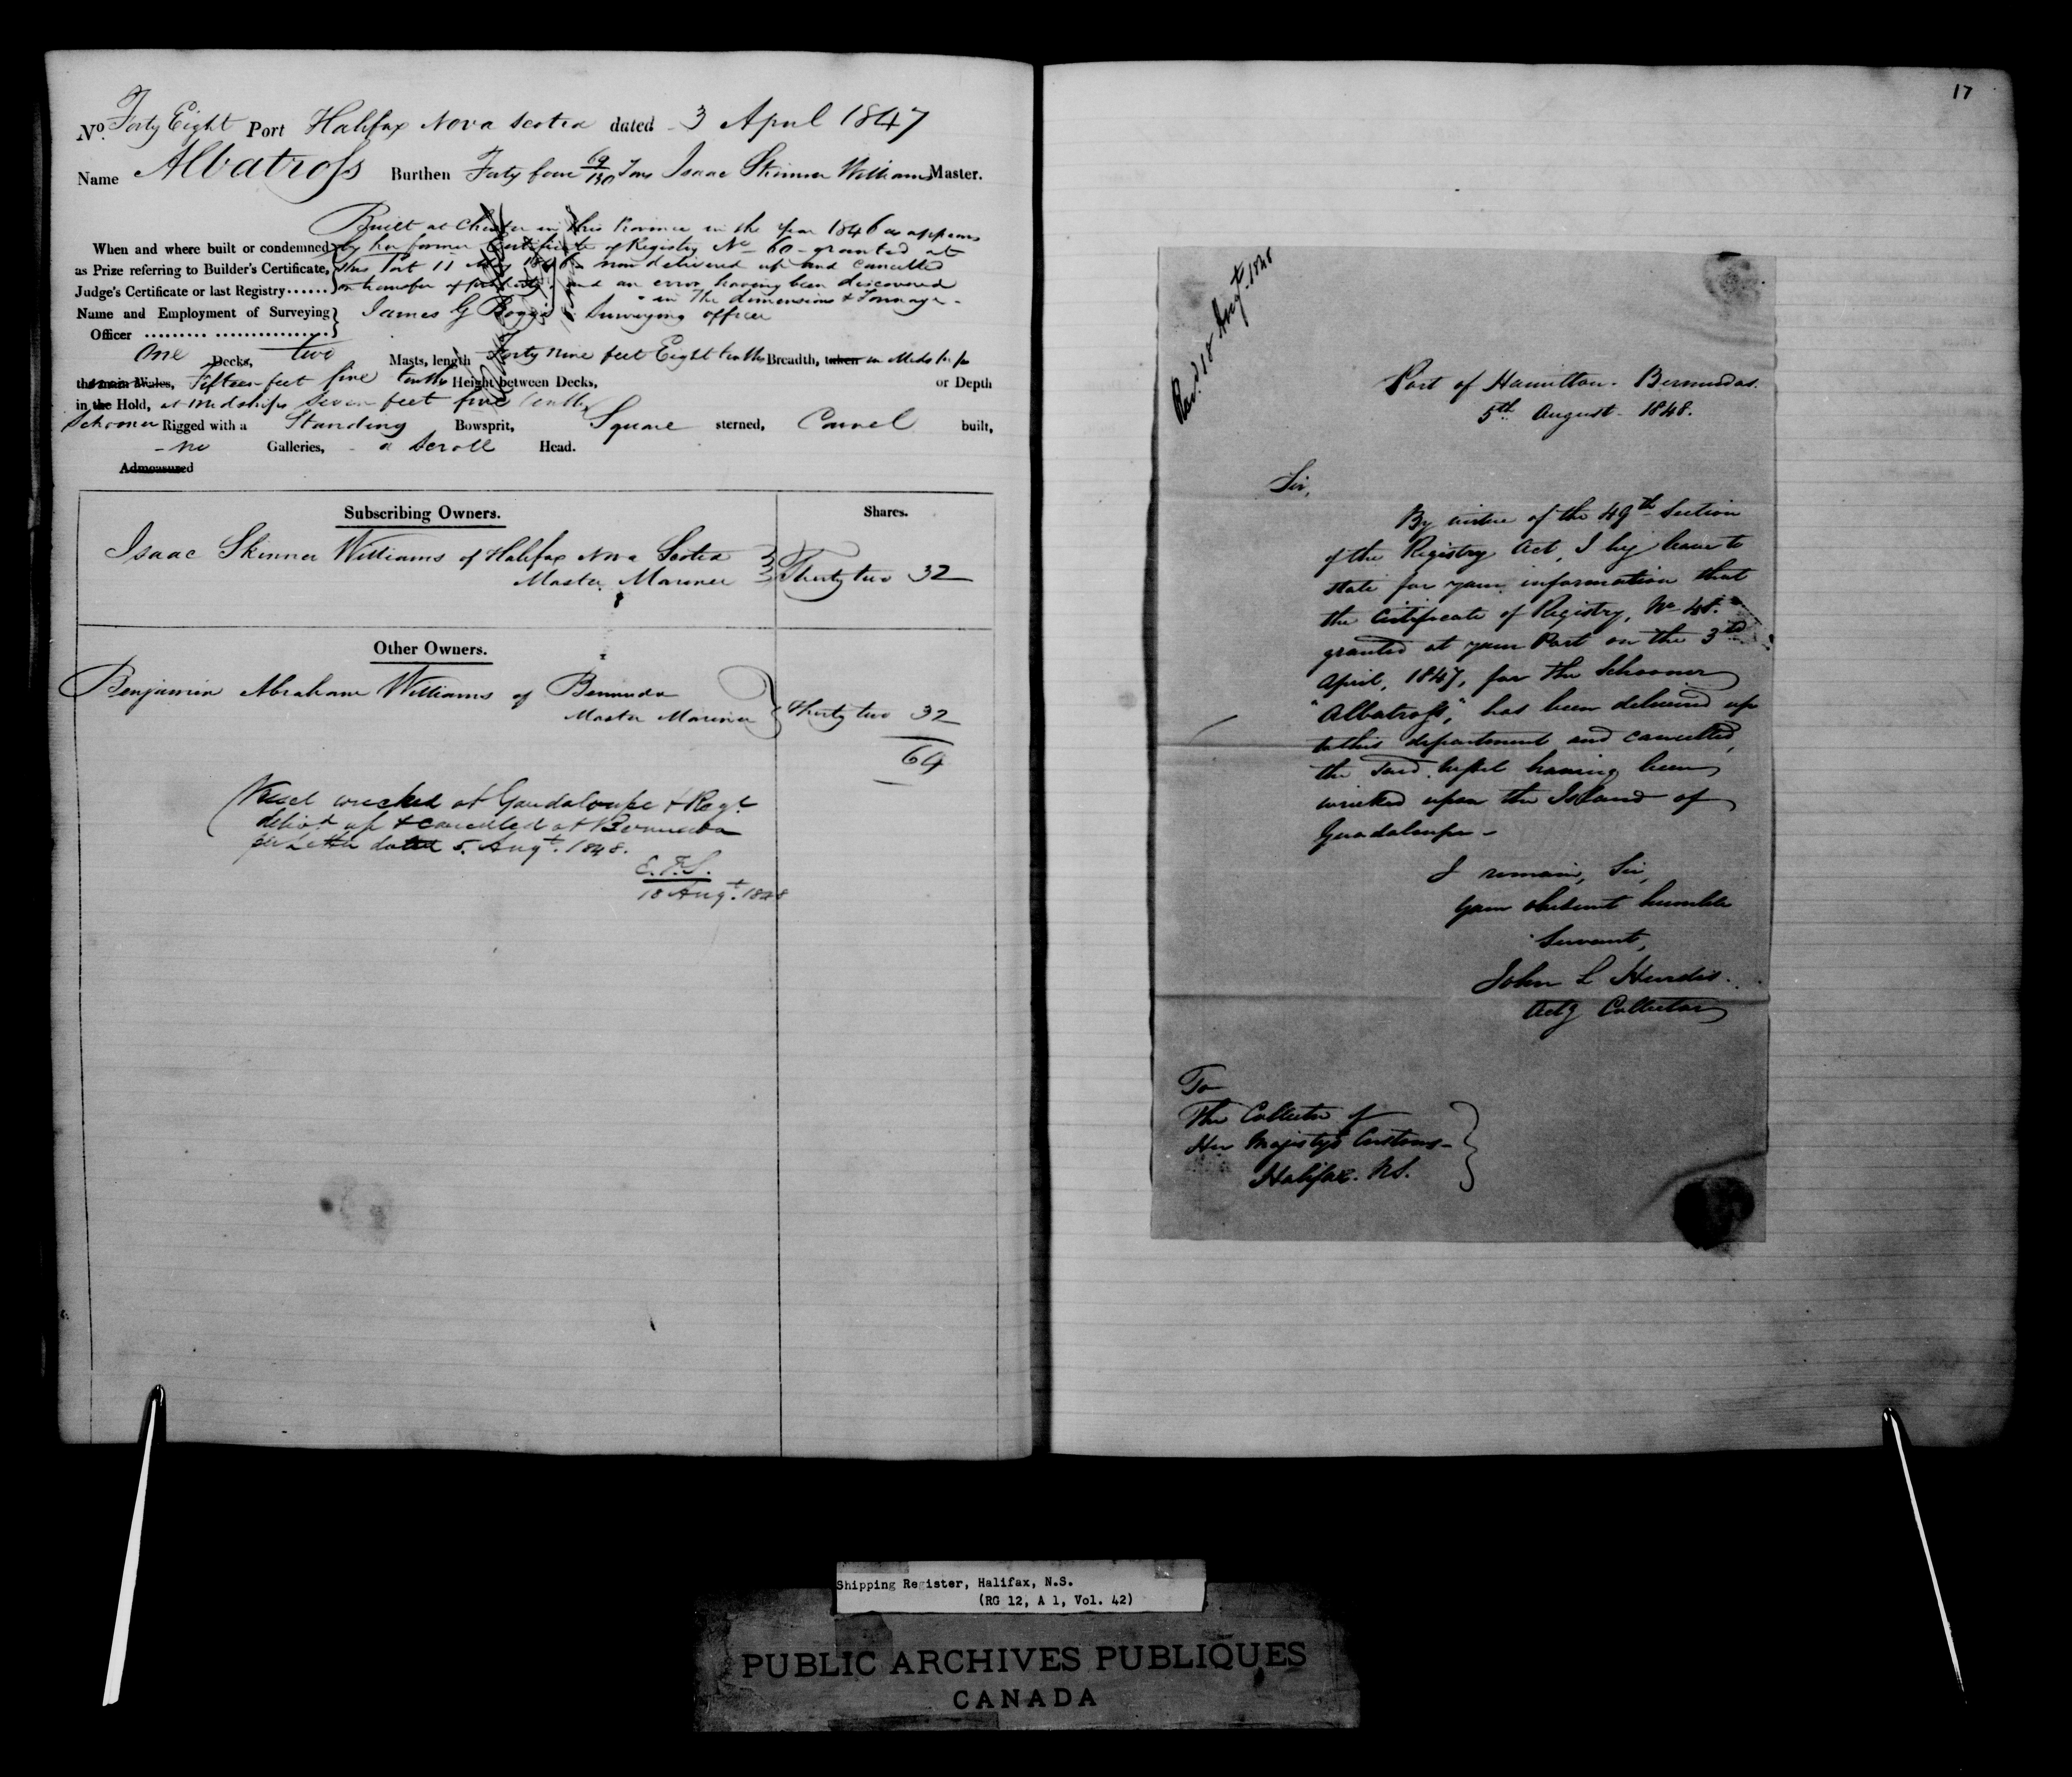 No. Forty Eight Port Halifax Nova Scotia dated 3 April 1847
Name Albatross Burthen Forty four 69/130 Tons Isaac Skinner Williams Master.
Built at Chester in this Province in the year 1846 as appears
When and where built or condemned by her former Certificate of Registry No 60 granted at
as Prize referring to Builder's Certificate, this Port 11 May 1846 now delivered up and cancelled
Judge's Certificate or last Registry...... on transfer of property, and an error having been discovered
in the dimensions & Tonnage -
Name and Employment of Surveying James G Boggs Surveying officer
Officer ......... ................
One Decks, two Masts, length Forty nine feet Eight tenths Breadth, taken in Midships
the main Wales, Fifteen feet five tenths Height between Decks, or Depth
in the Hold, at Midships Seven feet five tenths
Schooner Rigged with a Standing Bowsprit, Square sterned, Carvel built,
no Galleries, a Scroll Head.
Admeasured
Subscribing Owners. Shares.
Isaac Skinner Williams of Halifax Nova Scotia
Master Mariner Thirty two 32
Other Owners.
Benjamin Abraham Williams of Bermuda
Master Mariner Thirty two 32
64
Vessel wrecked at Gaudaloupe & Regr.
delivd. up & cancelled at Bermuda
per Letter dated 5. Augt. 1848.
E.F.S.
18 Augt. 1848
17
Recd. 18 Augt. 1848
Port of Hamilton. Bermudas.
5th August 1848.
Sir,
By virtue of the 49th Section
of the Registry Act, I beg leave to
state for your information that
the Certificate of Registry, No 48.
granted at your Port on the 3rd
April, 1847, for the Schooner
"Albatross," has been delivered up
to this department and cancelled,
the said vessel having been
wrecked upon the Island of
Guadaloupe -
I remain, Sir,
Your obedient humble
Servant,
John L Hurdis.
Actg Collector
To
The Collector of
Her Majesty's Customs -
Halifax. N.S.
Shipping Register, Halifax, N.S.
(RG 12, A 1, Vol. 42)
PUBLIC ARCHIVES PUBLIQUES
CANADA